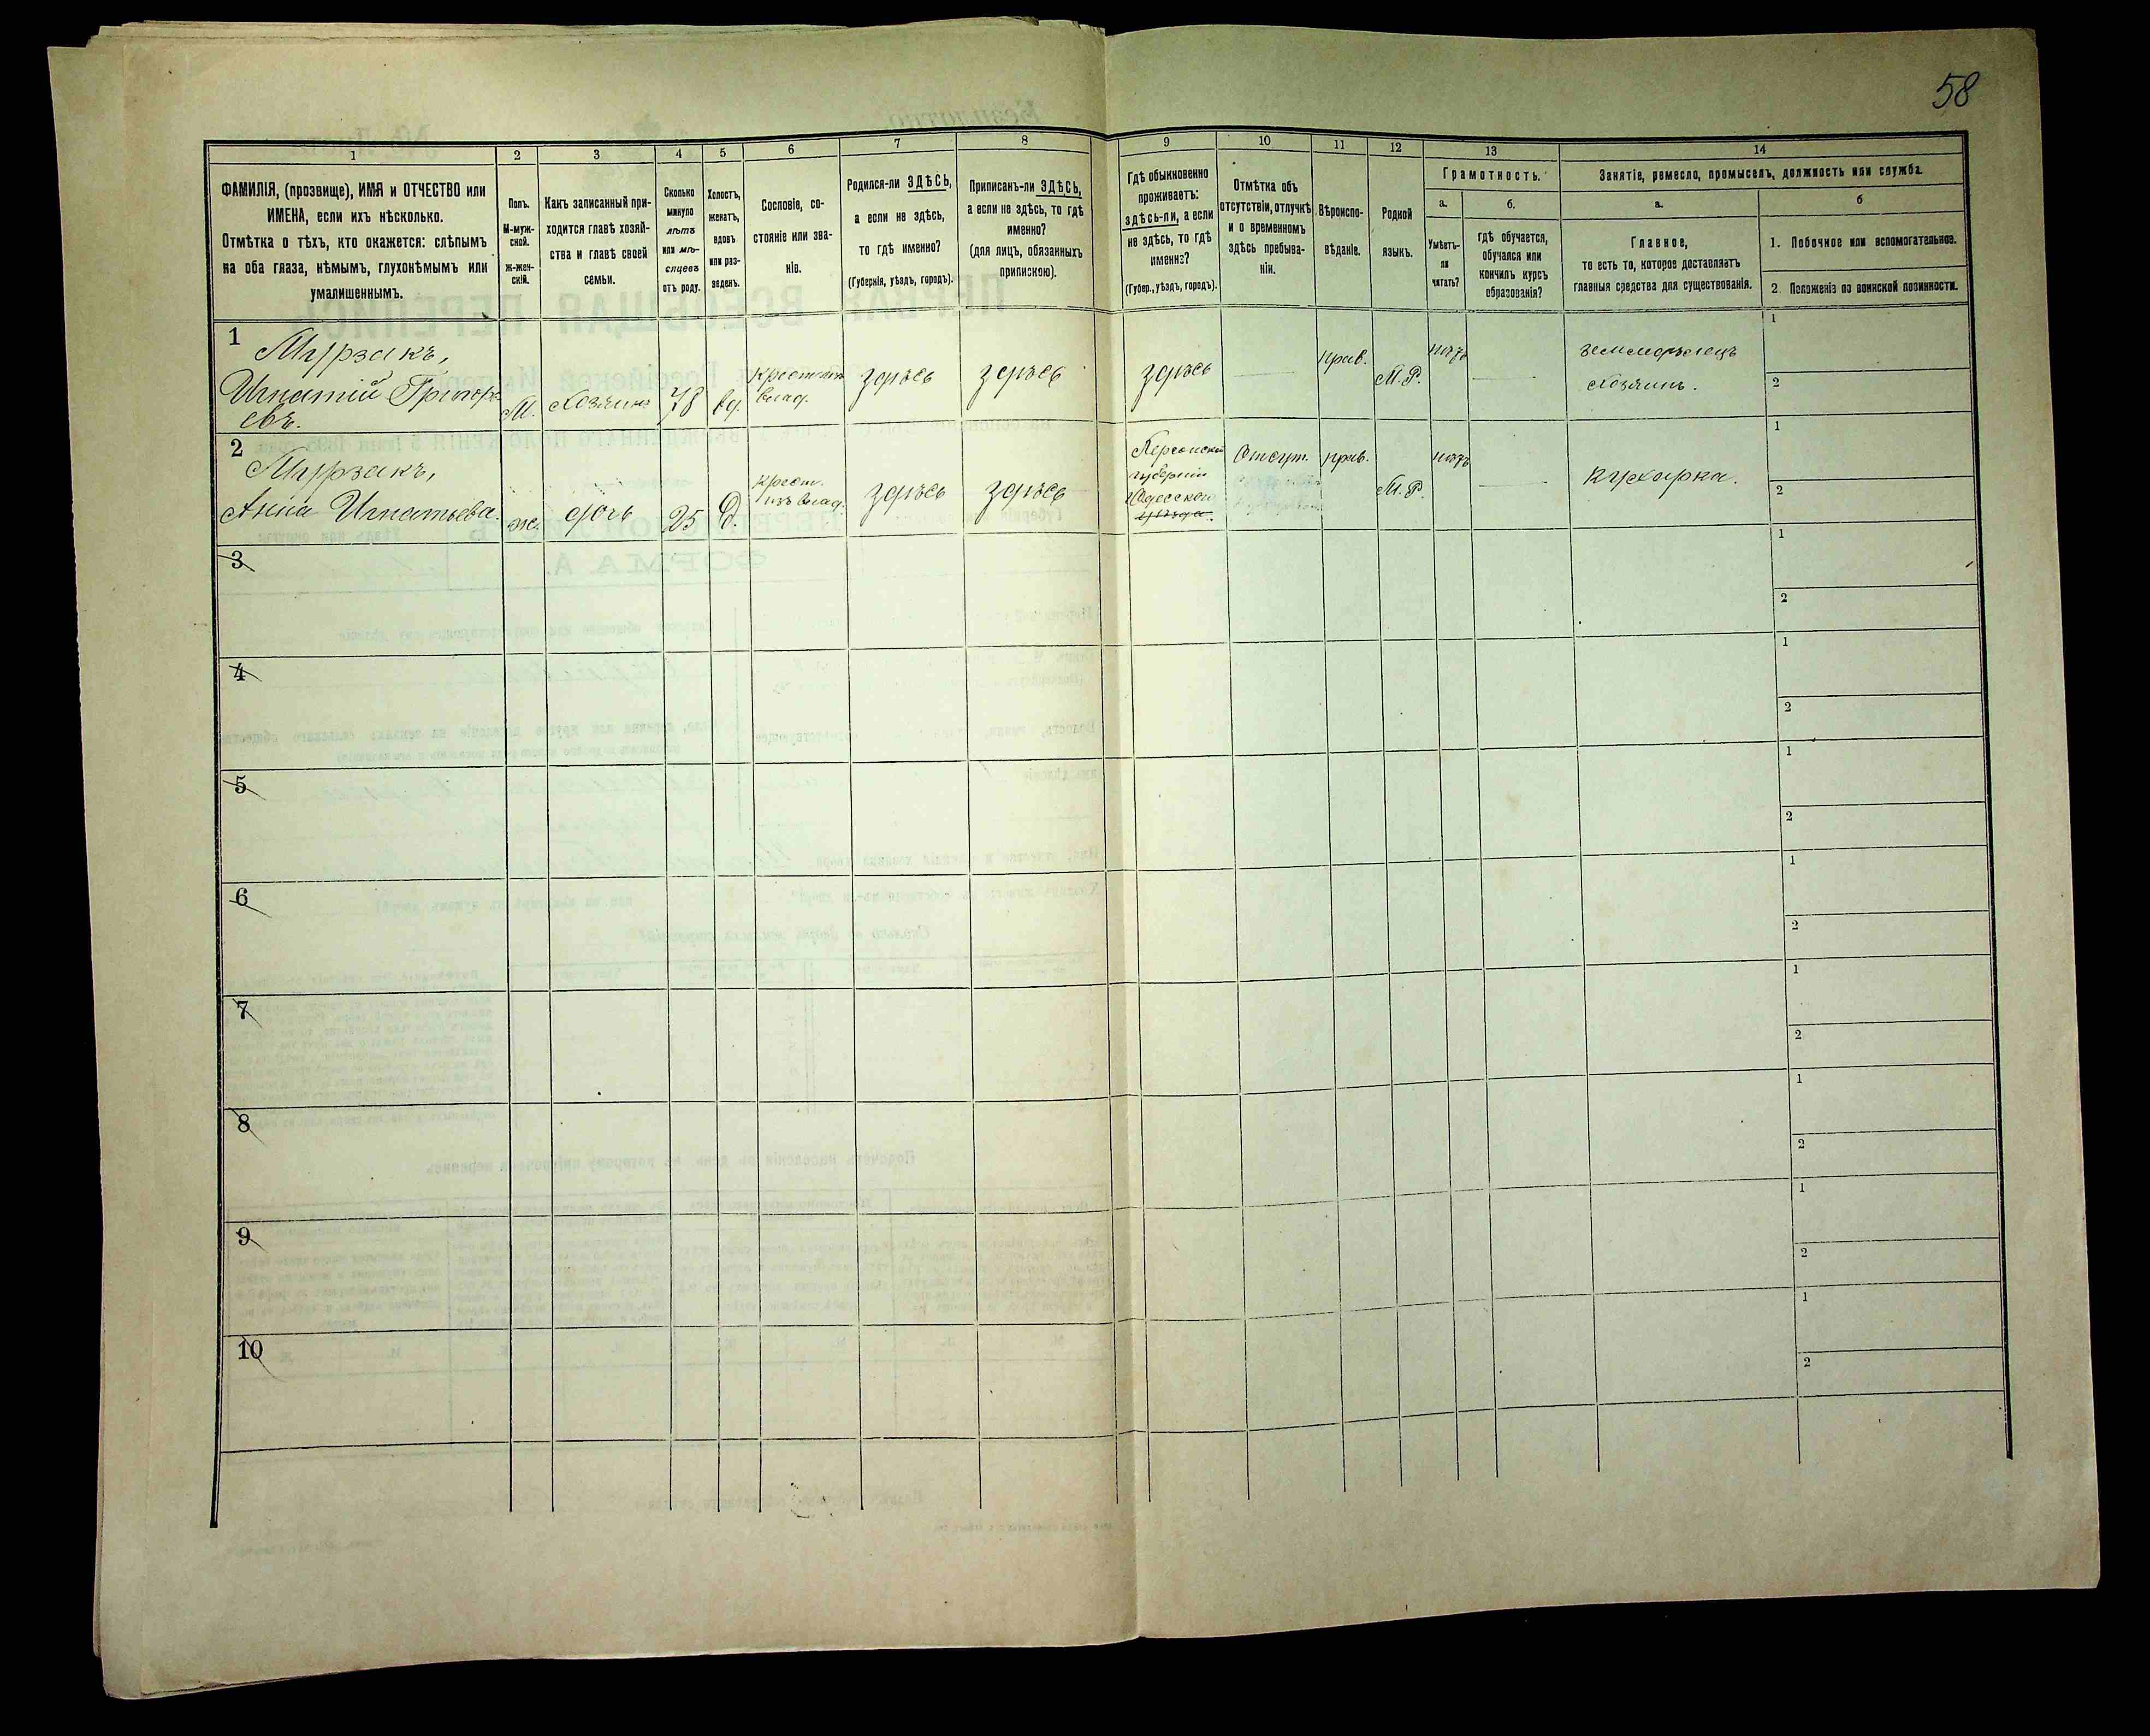 58
1
2
3
4
5
6
7
8
9
10
11
12
13
14
ФАМИЛІЯ, (прозвище), ИМЯ и ОТЧЕСТВО или
ИМЕНА, если ихъ нѣсколько.
Отмѣтка о тѣхъ, кто окажется: слѣпымъ
на оба глаза, нѣмымъ, глухонѣмымъ или
умалишеннымъ.
Полъ.
М-муж-
ской.
ж-жен-
скій.
Какъ записанный при-
ходится главѣ хозяй-
ства и главѣ своей
семьи.
Сколько
минуло
лѣтъ
или мѣ-
сяцевъ
отъ роду.
Холостъ,
женатъ,
вдовъ
или раз-
веденъ.
Сословіе, со-
стояніе или зва-
ніе.
Родился-ли ЗДѢСЬ,
а если не здѣсь,
то гдѣ именно?
(Губернія, уѣздъ, городъ).
Приписанъ-ли ЗДѢСЬ,
а если не здѣсь, то гдѣ
именно?
(для лицъ, обязанныхъ
припискою).
Гдѣ обыкновенно
проживаетъ:
здѣсь-ли, а если
не здѣсь, то гдѣ
именно?
(Губер., уѣздъ, городъ).
Отмѣтка объ
отсутствіи, отлучкѣ
и о временномъ
здѣсь пребыва-
ніи.
Вѣроиспо-
вѣданіе.
Родной
языкъ.
Грамотность.
а.
Умѣетъ-
ли
читать?
б.
гдѣ обучается,
обучался или
кончилъ курсъ
образованія?
Занятіе, ремесло, промыселъ, должность или служба.
а.
Главное,
то есть то, которое доставляетъ
главныя средства для существованія.
б
1. Побочное или вспомогательное.
2 Положеніе по воинской повинности.
1
Мурзакъ,
Игнатій Григорь
евъ.
М.
хозяинъ
78
вд.
Крестьян
влад.
здѣсь
здѣсь
здѣсь
прав.
М.Р.
нѣтъ
земледѣлецъ
хозяинъ.
1
2
2
Мурзакъ,
Анна Игнатьева.
ж.
дочь
25
д.
крест.
изъ влад.
здѣсь
здѣсь
Херсонской
губерніи
Одесского
уѣзда.
Отсут.
прав.
М.Р.
нѣтъ
кухарка.
1
2
3
1
2
4
1
2
5
1
2
6
1
2
7
1
2
8
1
2
9
1
2
10
1
2